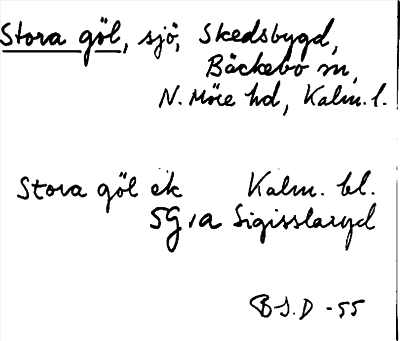 Stora göl, sjö, Skedsbygd,
Bäckebo sn,
N. Möre hd, Kalm. l.
Stora göl ek Kalm. bl.
5G 1a Sigisslaryd
B-S.D -55